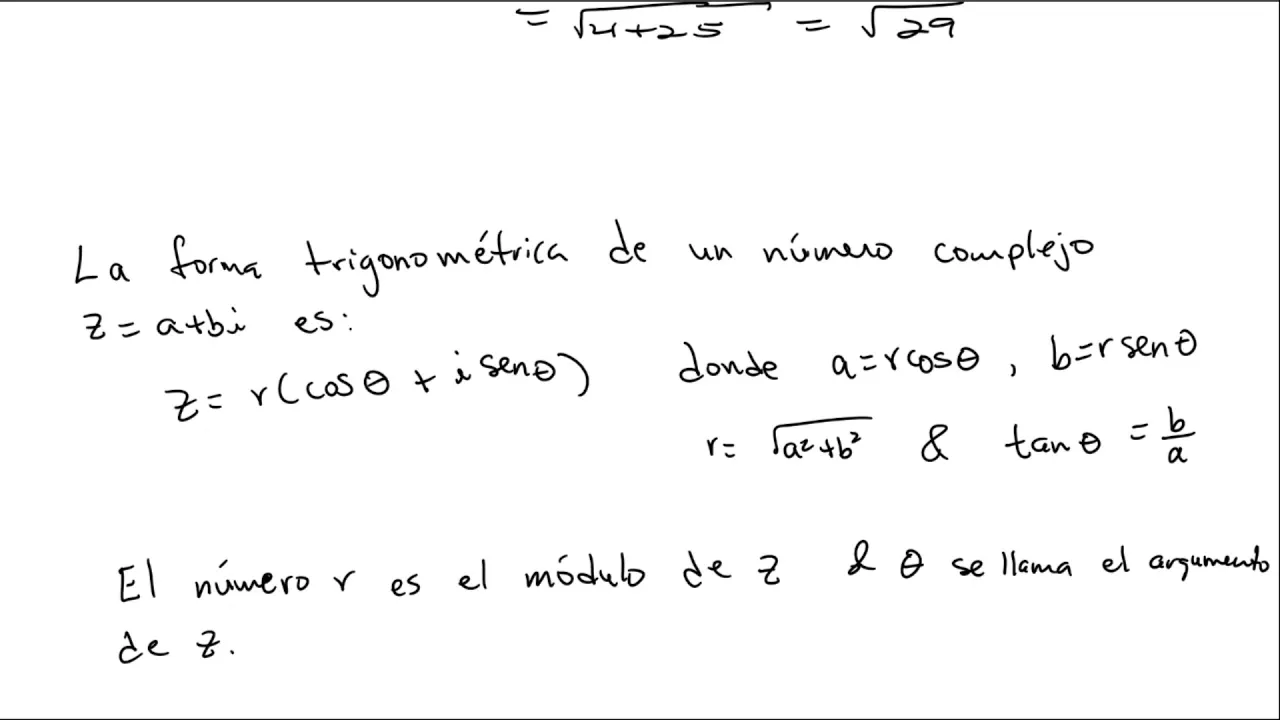 = √4+25 = √29
La forma trigonométrica de un número complejo
z = a+bi es:
z = r(cosθ + i senθ) donde a=rcosθ, b=rsenθ
r= √a²+b² & tanθ = b/a
El número r es el módulo de z & θ se llama el argumento
de z.